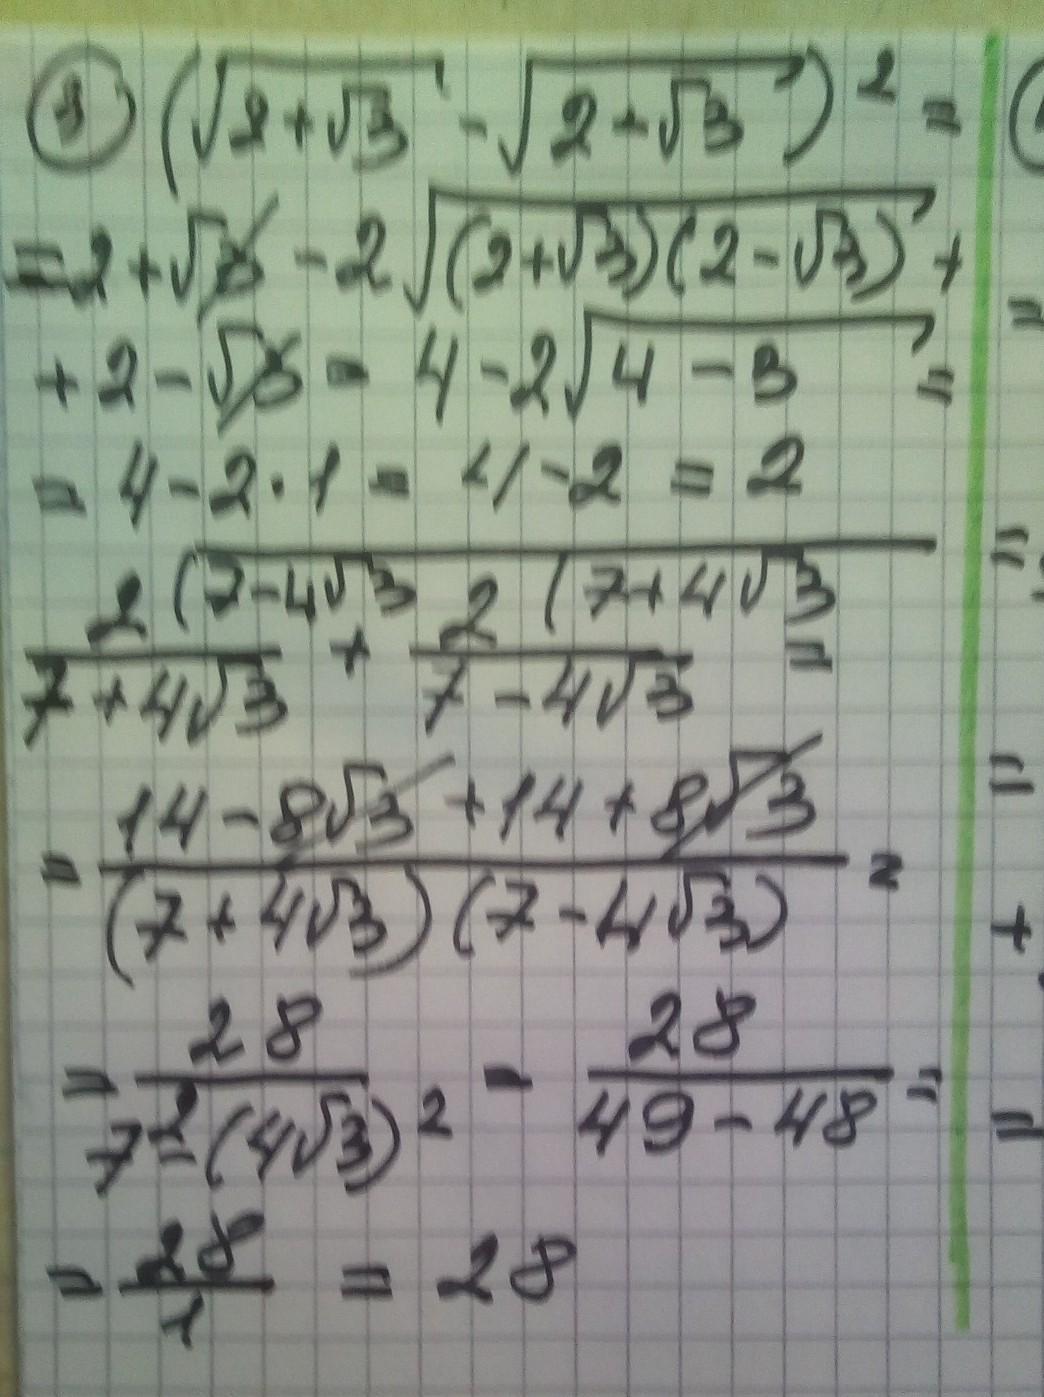 3) (√(2+√3) - √(2+√3))² =
=2+√3 - 2√((2+√3)(2-√3)) +
+2-√3 = 4-2√(4-3) =
= 4-2·1 = 4-2 = 2
2 (7-4√3 2 (7+4√3
7+4√3 + 7-4√3 =
14-8√3 +14+8√3
= (7+4√3)(7-4√3) =
28 28
= 7²-(4√3)² = 49-48 =
= 28/1 = 28